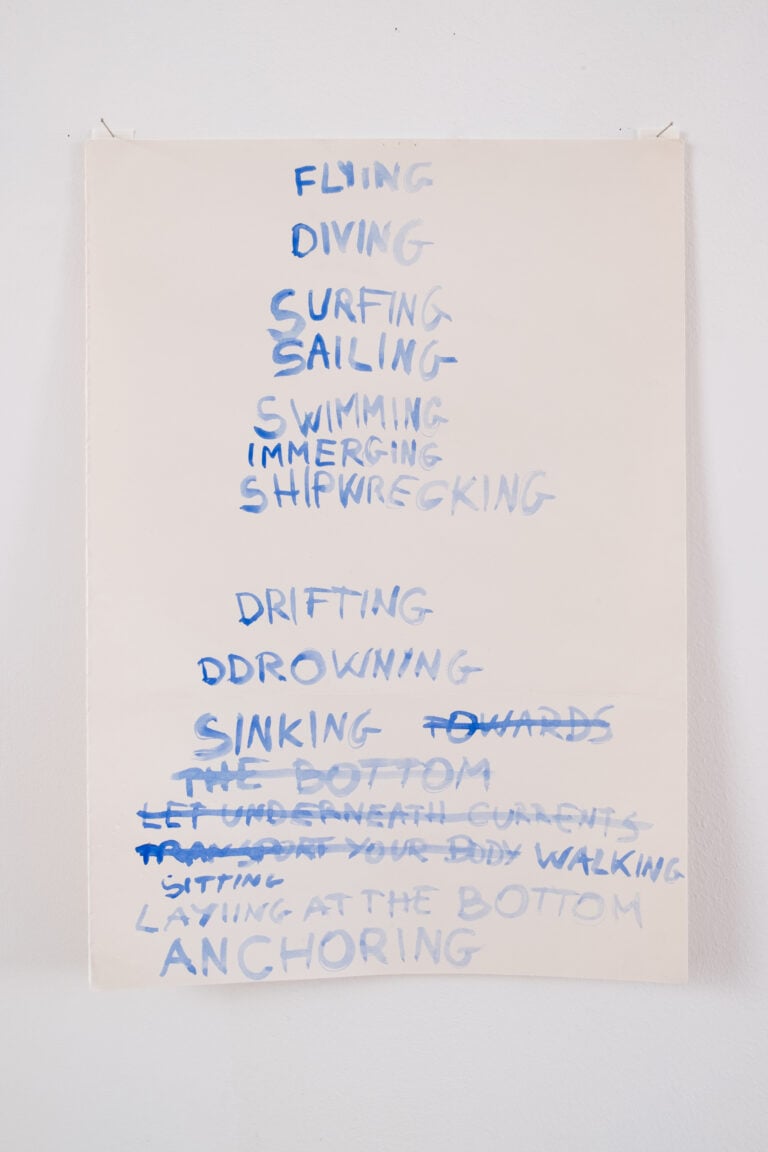 FLYING
DIVING
SURFING
SAILING
SWIMMING
IMMERGING
SHIPWRECKING
DRIFTING
DDROWNING
SINKING TOWARDS
THE BOTTOM
LET UNDERNEATH CURRENTS
TRANSPORT YOUR BODY WALKING
SITTING
LAYIING AT THE BOTTOM
ANCHORING